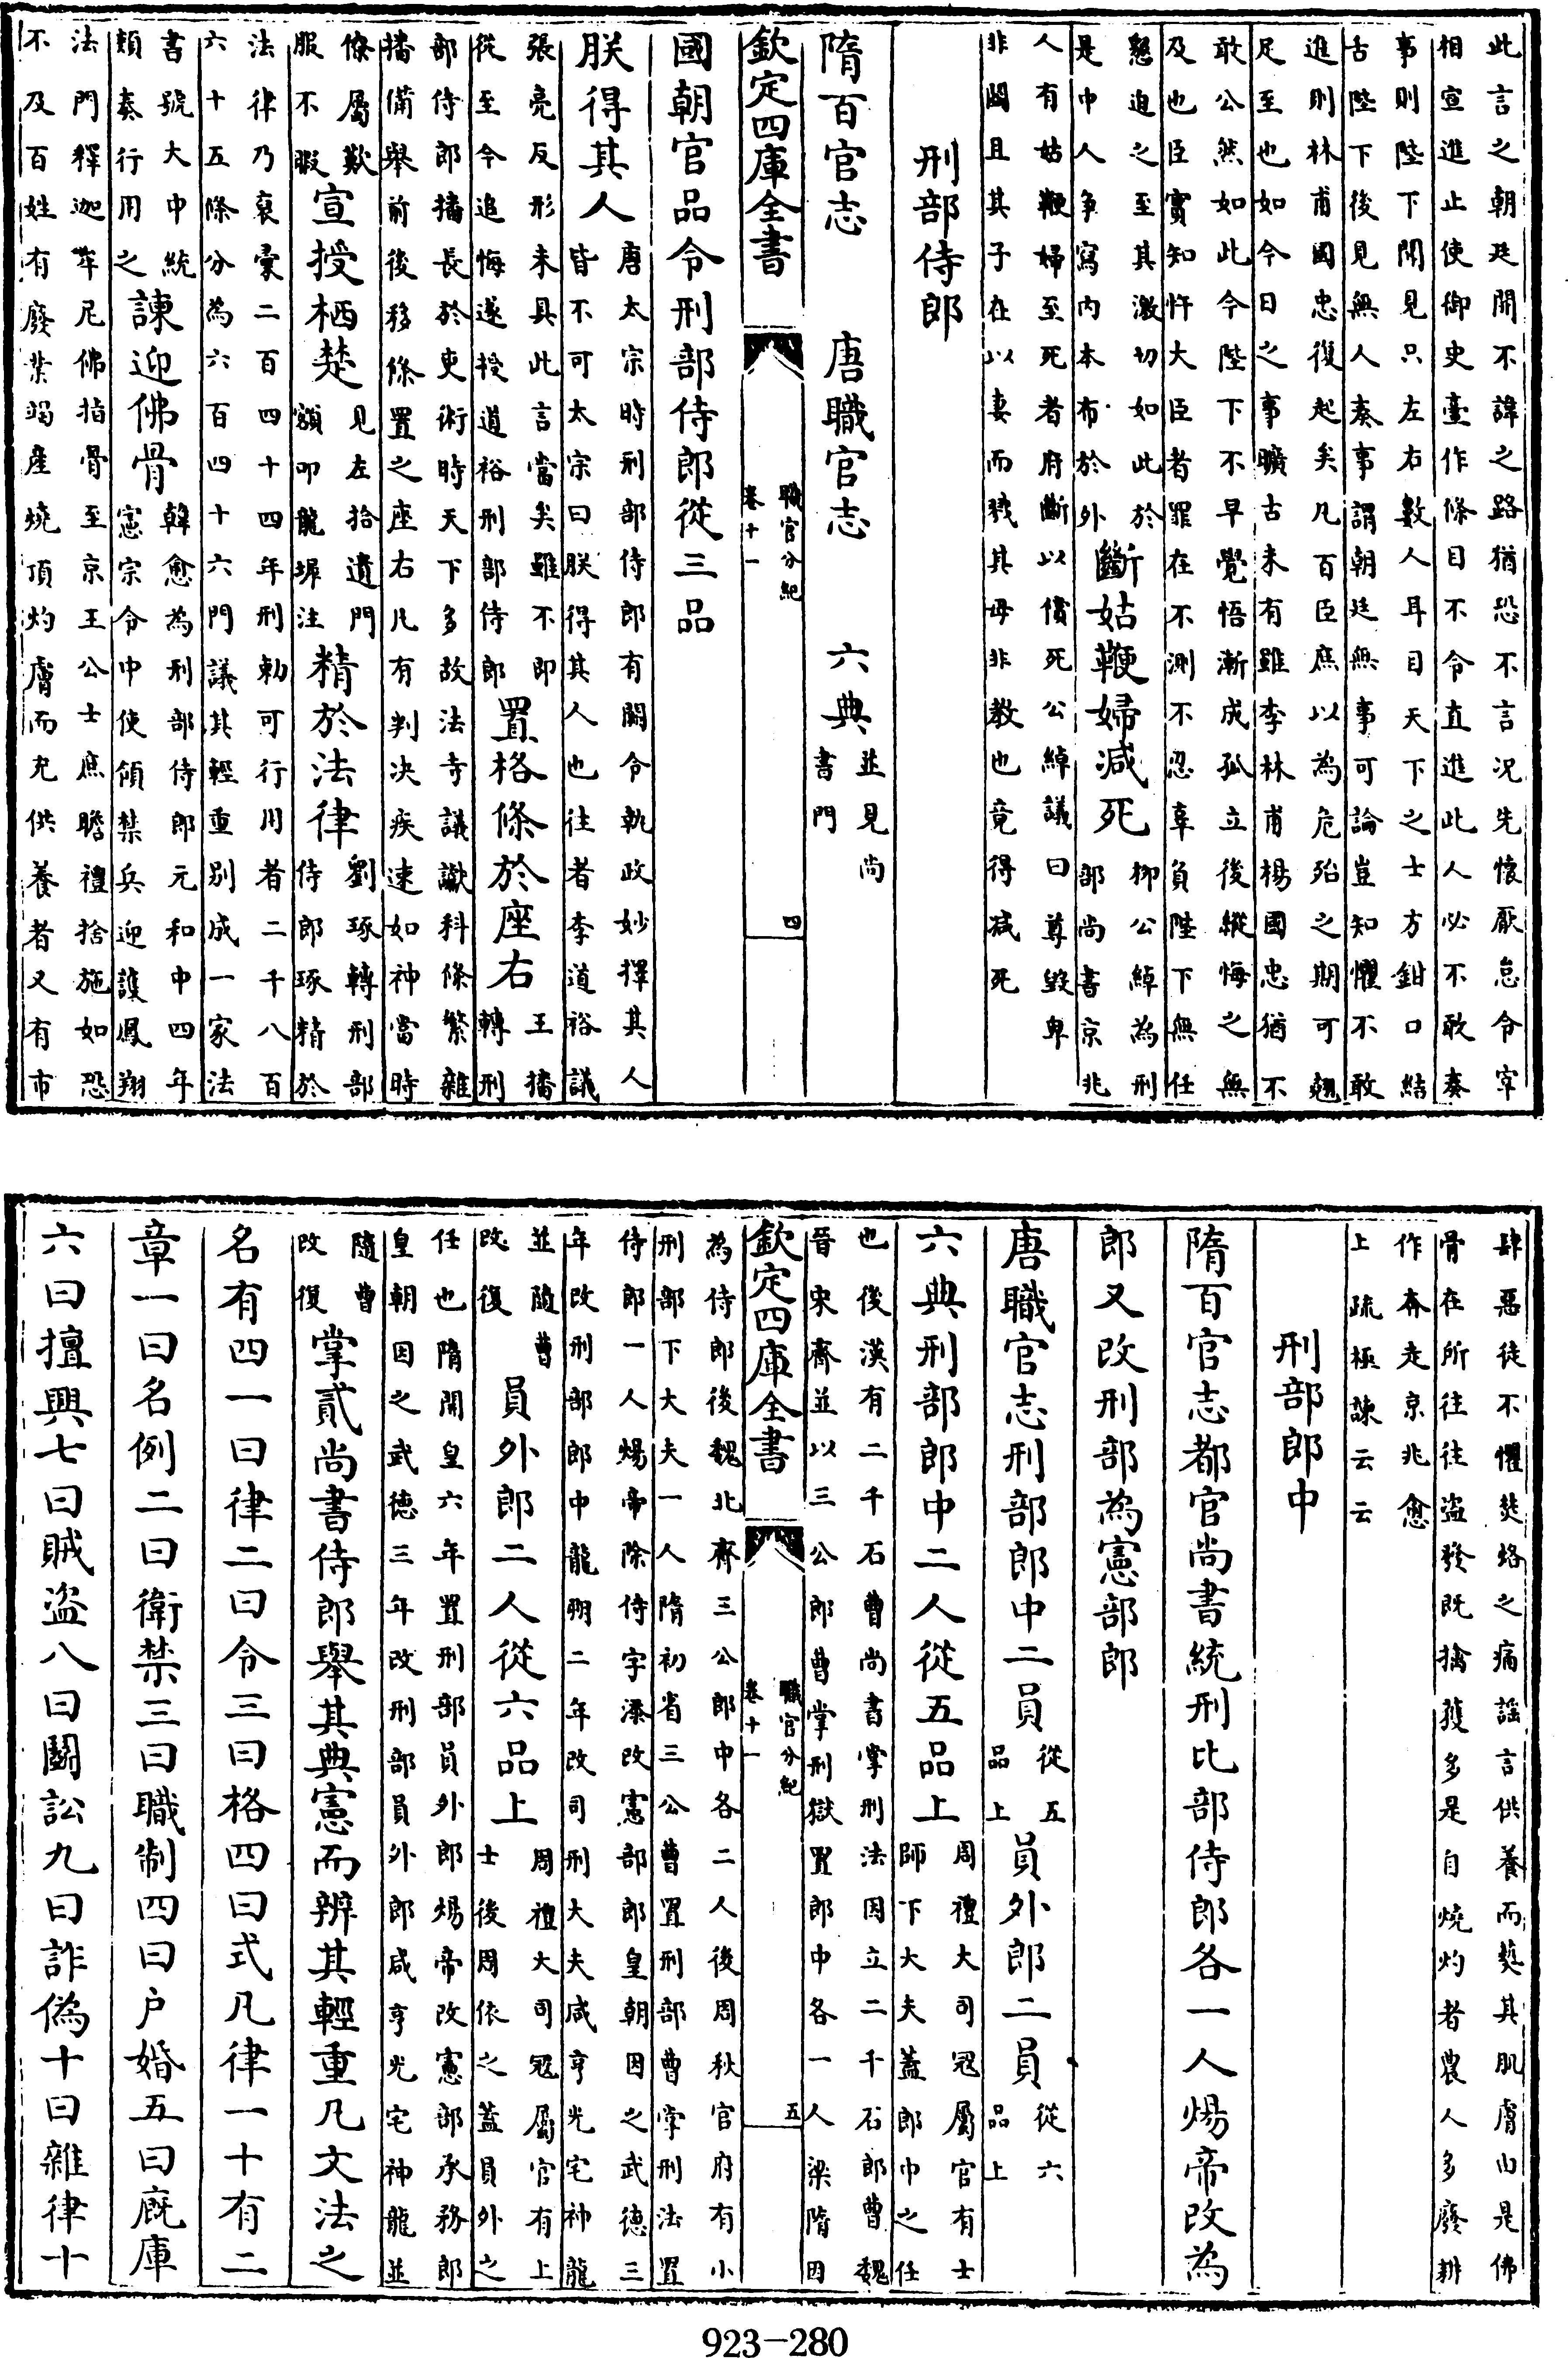 此言之朝廷開不諱之路猶恐不言况先懷厭怠令宰
相宣進止使御史臺作條目不令直進此人必不敢奏
事則陛下聞見只左右數人耳目天下之士方鉗口結
舌陛下後見無人奏事謂朝廷無事可論豈知懼不敢
進則林甫國忠復起矣凡百臣庶以為危殆之期可翹
足至也如今日之事曠古未有雖李林甫楊國忠猶不
敢公然如此今陛下不早覺悟漸成孤立後縱悔之無
及也臣實知忤大臣者罪在不測不忍辜負陛下無任
懇迫之至其激切如此於
是中人爭寫内本布於外
斷姑鞭婦减死
柳公綽為刑
部尚書京兆
人有姑鞭婦至死者府斷以償死公綽議曰尊毆卑
非鬬且其子在以妻而戮其母非教也竟得减死
刑部侍郎
隋百官志 唐職官志 六典
並見尚
書門
欽定四庫全書
職官分紀
卷十一
四
國朝官品令刑部侍郎從三品
朕得其人
唐太宗時刑部侍郎有闕令執政妙擇其人
皆不可太宗曰朕得其人也往者李道裕議
張亮反形未具此言當矣雖不即
從至今追悔遂授道裕刑部侍郎
置格條於座右
王播
轉刑
部侍郎播長於吏術時天下多故法寺議讞科條繁雜
播備舉前後移條置之座右凡有判决疾速如神當時
僚屬歎
服不暇
宣授栖楚
見左拾遺門
額叩龍墀注
精於法律
劉琢轉刑部
侍郎琢精於
法律乃裒彙二百四十四年刑勅可行用者二千八百
六十五條分為六百四十六門議其輕重别成一家法
書號大中統
類奏行用之
諫迎佛骨
韓愈為刑部侍郎元和中四年
憲宗令中使傾禁兵迎護鳳翔
法門釋迦牟尼佛指骨至京王公士庶瞻禮捨施如恐
不及百姓有廢業竭產燒頂灼膚而充供養者又有市
肆惡徒不懼焚烙之痛謡言供養而爇其肌膚由是佛
骨在所往往盗發既擒獲多是自燒灼者農人多廢耕
作奔走京兆愈
上疏極諫云云
刑部郎中
隋百官志都官尚書統刑比部侍郎各一人煬帝改為
郎又改刑部為憲部郎
唐職官志刑部郎中二員
從五
品上
員外郎二員
從六
品上
六典刑部郎中二人從五品上
周禮大司冦屬官有士
師下大夫蓋郎中之任
也後漢有二千石曹尚書掌刑法因立二千石郎曹魏
晉宋齊並以三公郎曹掌刑獄置郎中各一人梁隋因
欽定四庫全書
職官分紀
卷十一
五
為侍郎後魏北齊三公郎中各二人後周秋官府有小
刑部下大夫一人隋初省三公曹置刑部曹掌刑法置
侍郎一人煬帝除侍字深改憲部郎皇朝因之武德三
年改刑部郎中龍朔二年改司刑大夫咸亨光宅神龍
並隨曹
改復
員外郎二人從六品上
周禮大司冦屬官有上
士後周依之蓋員外之
任也隋開皇六年置刑部員外郎煬帝改憲部承務郎
皇朝因之武德三年改刑部員外郎咸亨光宅神龍並
隨曹
改復
掌貳尚書侍郎舉其典憲而辨其輕重凡文法之
名有四一曰律二曰令三曰格四曰式凡律一十有二
章一曰名例二曰衛禁三曰職制四曰户婚五曰廐庫
六曰擅興七曰賊盗八曰鬬訟九曰詐偽十曰雜律十
923-280